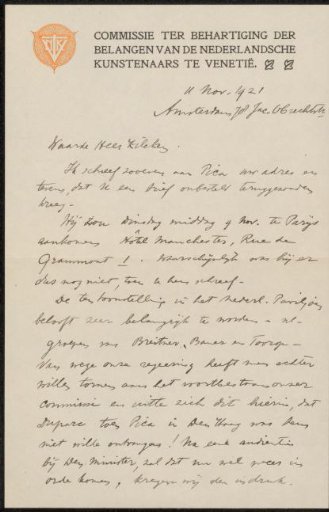 COMMISSIE TER BEHARTIGING DER
BELANGEN VAN DE NEDERLANDSCHE
KUNSTENAARS TE VENETIË.
11 Nov. 1921
Amsterdam, Jac. Obrechtstr
Waarde Heer
Ik schreef zooeven aan Pica uw adres en
tevens, dat U een brief onbesteld teruggezonden
kreeg.
Hij zou Dinsdag middag 9 nov. te Parijs
aankomen Hôtel Manchester, Rue de
Grammont 1. Waarschijnlijk was hij er
dus nog niet, toen U hem schreef.
De tentoonstelling in het Nederl. Paviljoen
belooft zeer belangrijk te worden -
groepen van Breitner, Bauer en Toorop -
Van wege onze regeering heeft men echter
willen tornen aan het voortbestaan onzer
commissie en uitte zich dit hierin, dat
Duparc toen Pica in Den Haag was hem
niet wilde ontvangen! Na een audientie
bij den Minister, zal dit nu wel weer in
orde komen, kregen wij den indruk.